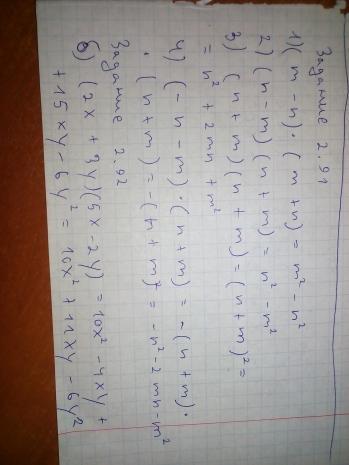 Задание 2.91
1) (m - n) · (m + n) = m² - n²
2) (n - m) (n + m) = n² - m²
3) (n + m) (n + m) = (n + m)² =
= n² + 2mn + m²
4) (- n - m) · (n + m) = - (n + m) ·
· (n + m) = - (n + m)² = - n² - 2mn - m²
Задание 2.92
б) (2x + 3y)(5x - 2y) = 10x² - 4xy +
+ 15xy - 6y² = 10x² + 11xy - 6y²